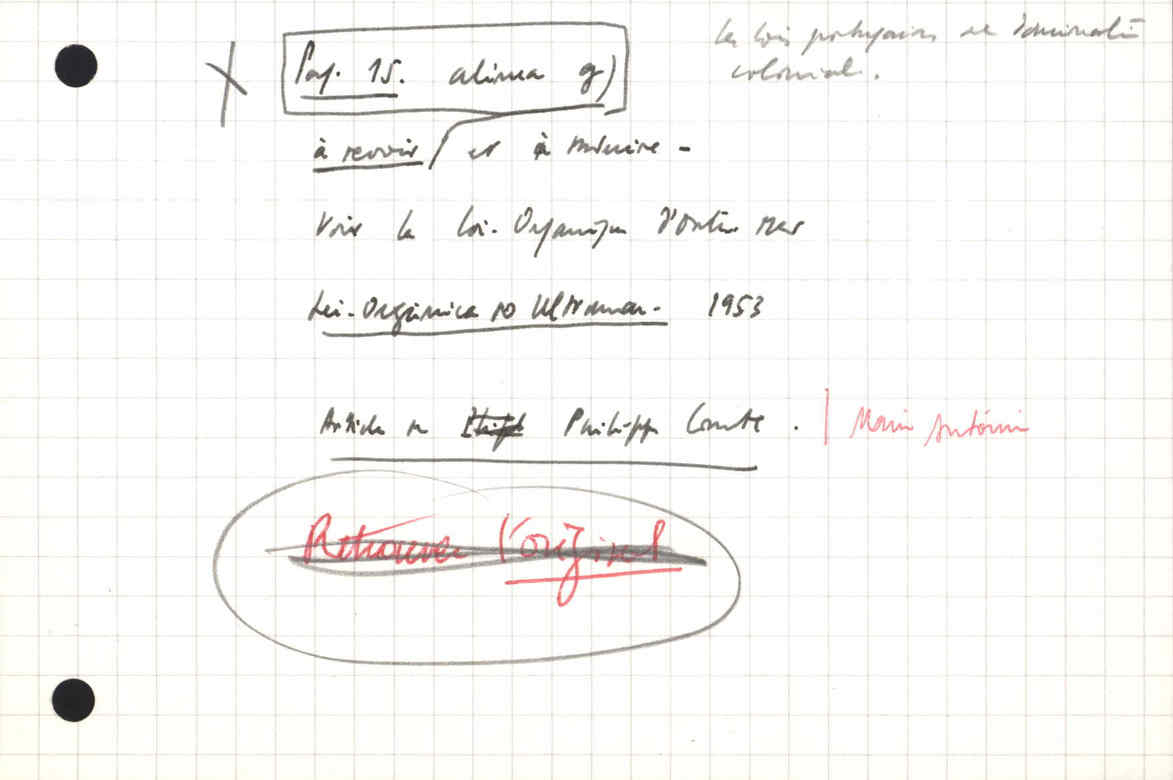 les lois portugaises de domination
coloniale.
X Pag. 15. alinea g)
à revoir / et à traduire -
Voir la Loi-Organique d'Outre Mer
Lei-Orgânica do Ultramar- 1953
Article de Philippe Comte . | Mario António
Retrouver l'original